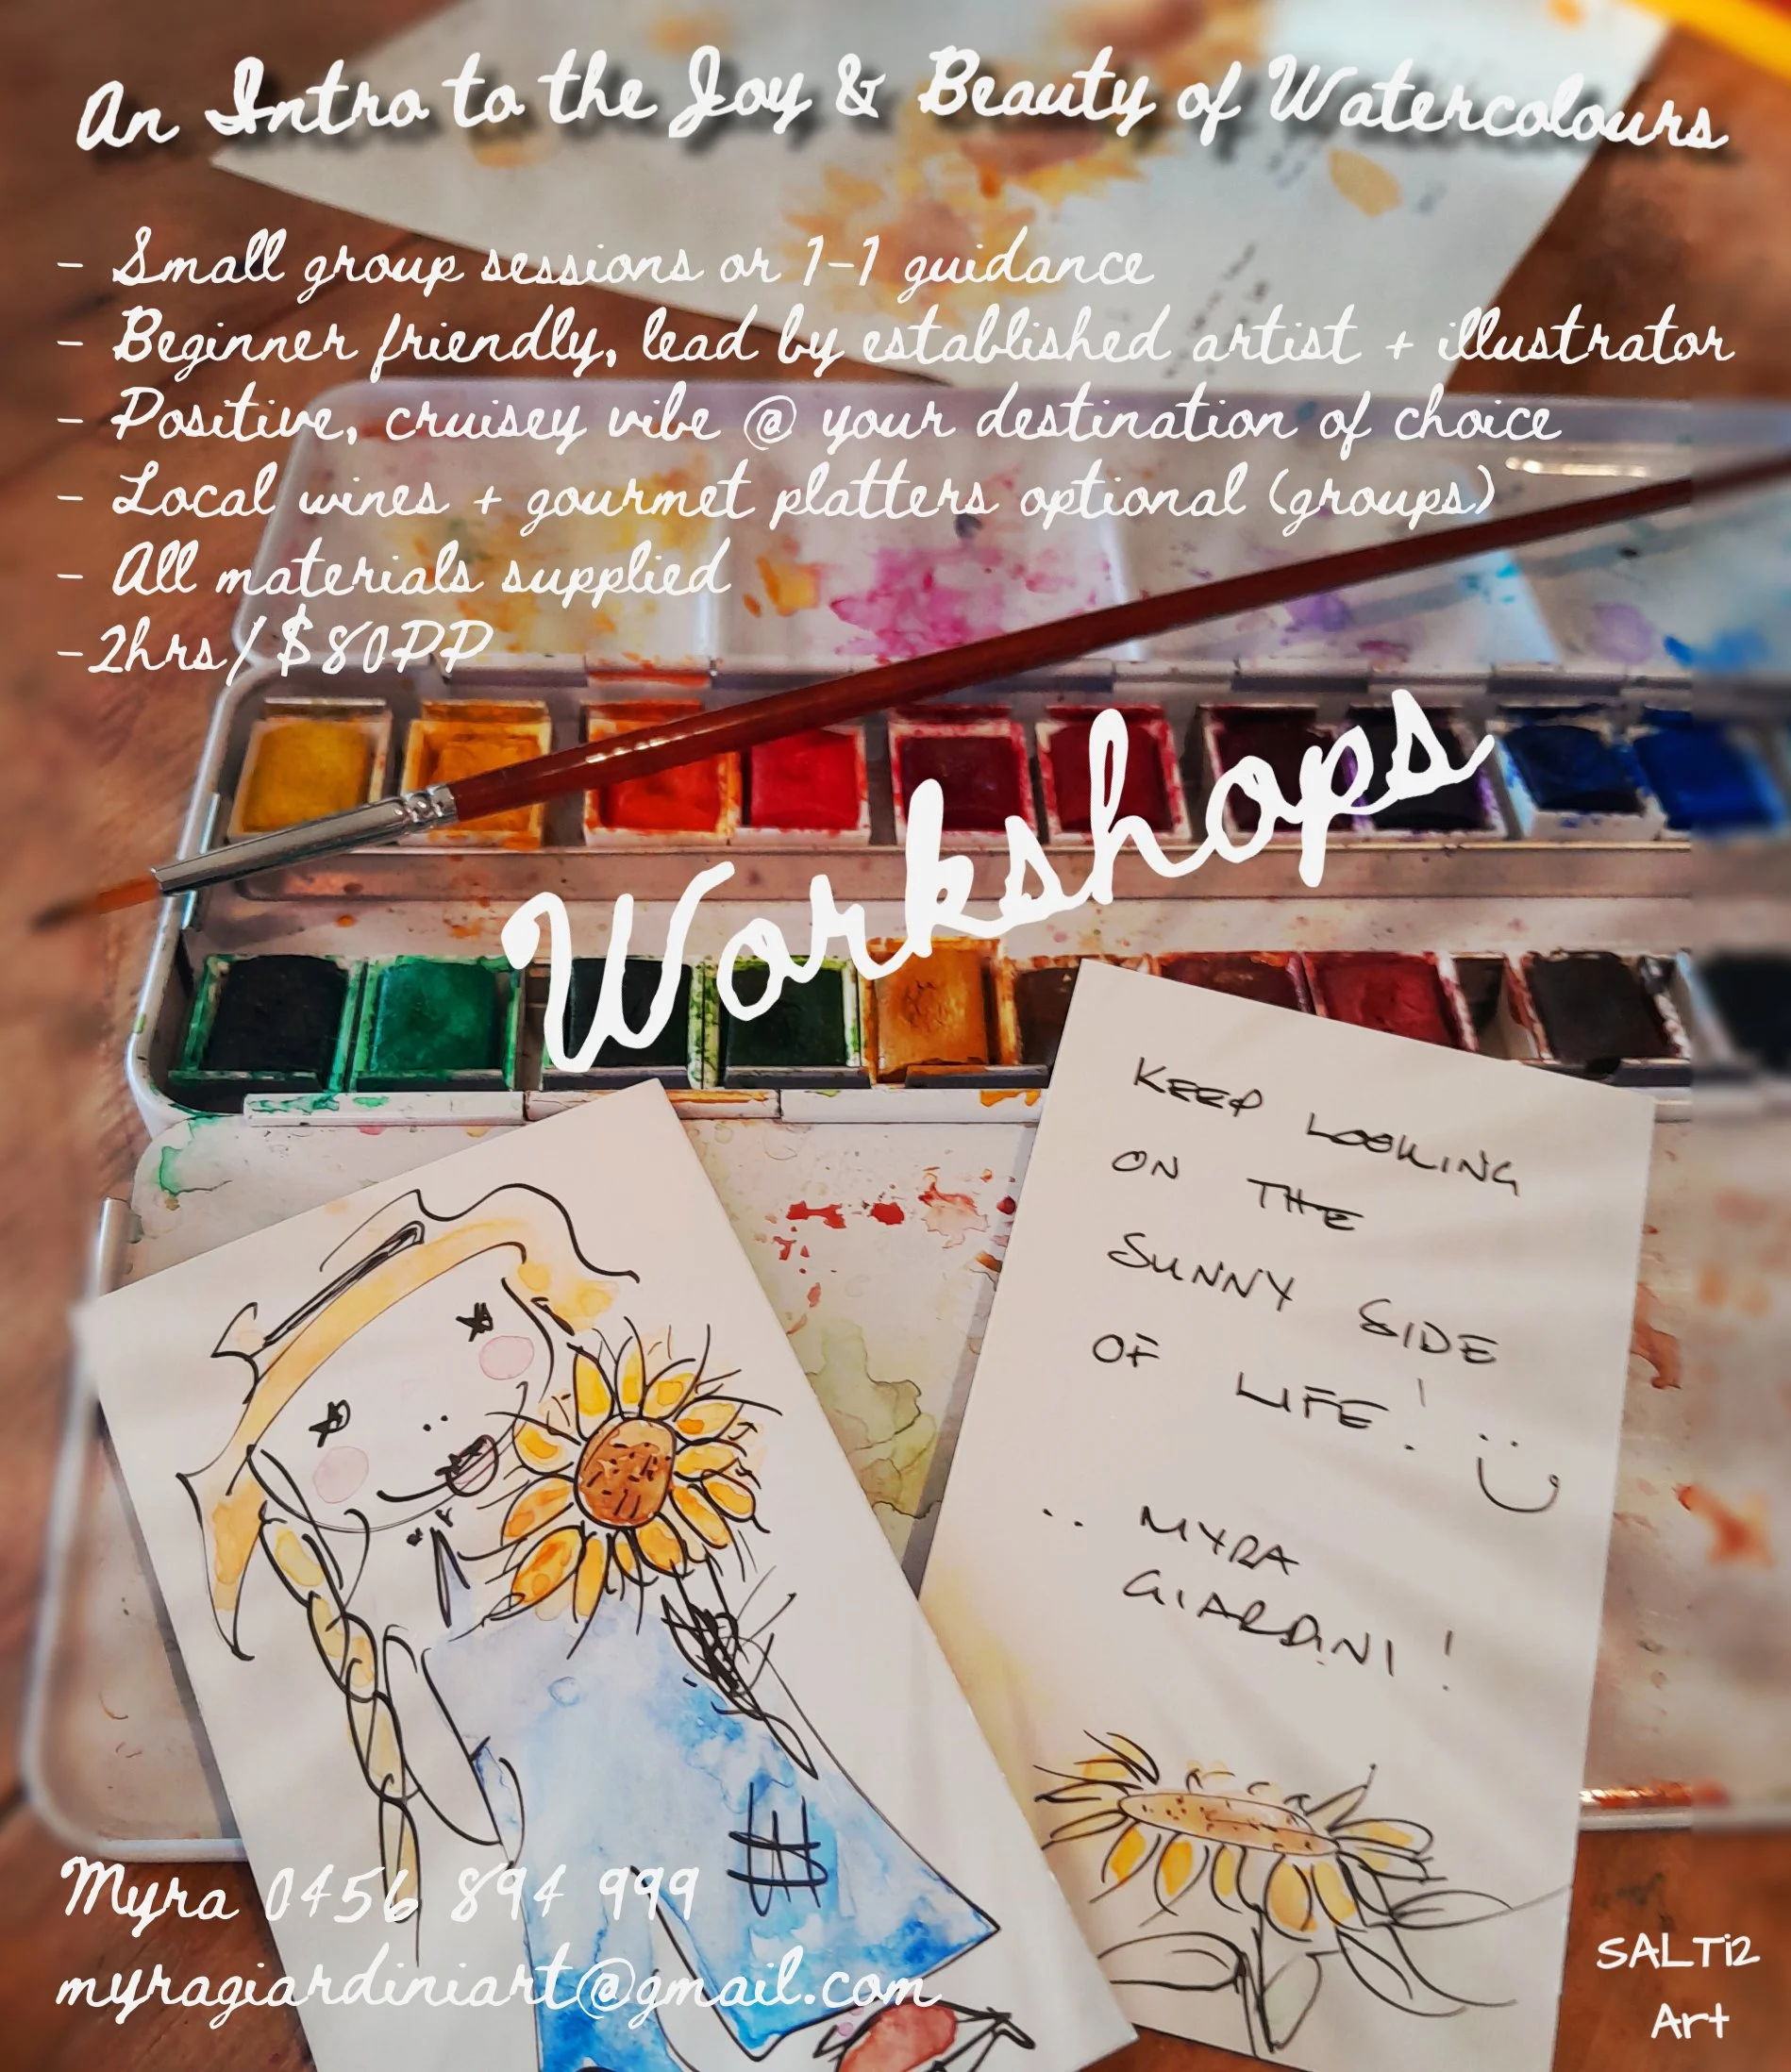 An Intro to the Joy & Beauty of Watercolours
- Small group sessions or 1-1 guidance
- Beginner friendly, lead by established artist + illustrator
- Positive, cruisey vibe @ your destination of choice
- Local wines + gourmet platters optional (groups)
- All materials supplied
-2hrs/$80PP
Workshops
KEEP LOOKING
ON THE
SUNNY SIDE
OF LIFE!
.. MYRA
GIARDINI!
Myra 0456 894 999
myragiardiniart@gmail.com
SALTi2
Art